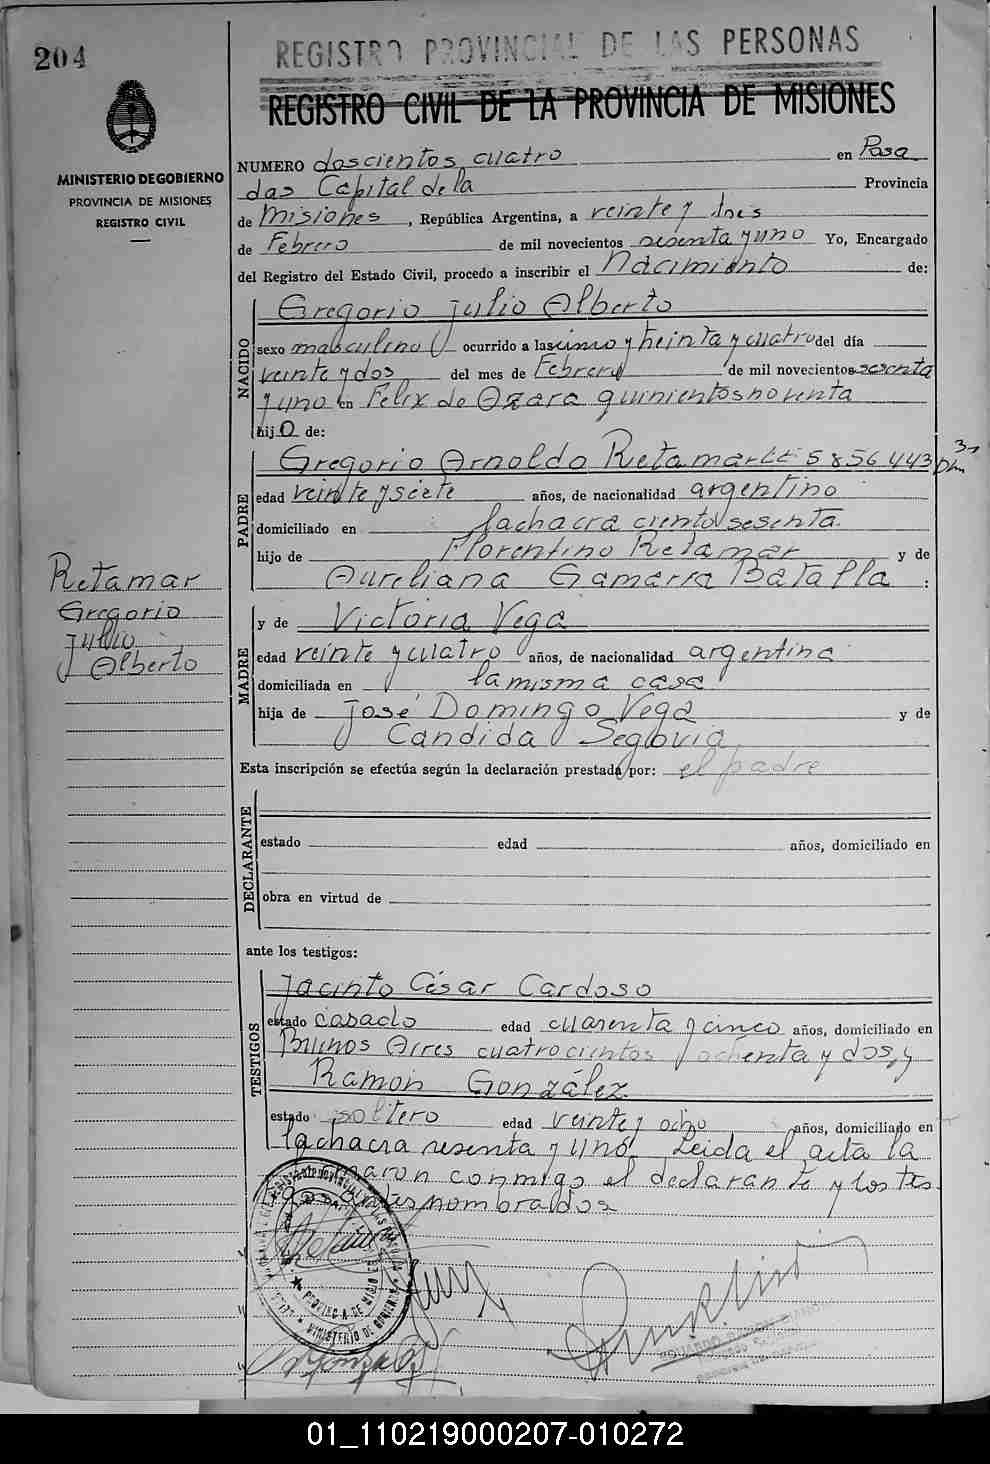 204
REGISTRO PROVINCIAL DE LAS PERSONAS
REGISTRO CIVIL DE LA PROVINCIA DE MISIONES
MINISTERIO DE GOBIERNO
PROVINCIA DE MISIONES
REGISTRO CIVIL
NUMERO doscientos cuatro en Posa
das Capital de la Provincia
de Misiones, República Argentina, a veinte y tres
de Febrero de mil novecientos sesenta y uno Yo, Encargado
del Registro del Estado Civil, procedo a inscribir el Nacimiento de:
NACIDO
Gregorio Julio Alberto
sexo masculino ocurrido a las cinco y treinta y cuatro del día
veinte y dos del mes de Febrero de mil novecientos sesenta
y uno en Félix de Azara quinientos noventa
hijo de:
PADRE
Gregorio Arnoldo Retamar LE 5856443 DM 31
edad veinte y siete años, de nacionalidad argentino
domiciliado en la chacra ciento sesenta
hijo de Florentino Retamar y de
Aureliana Gamarra Batalla :
Retamar
Gregorio
Julio
Alberto
MADRE
y de Victoria Vega
edad veinte y cuatro años, de nacionalidad argentina
domiciliada en la misma casa
hija de José Domingo Vega y de
Candida Segovia
Esta inscripción se efectúa según la declaración prestada por: el padre
DECLARANTE
estado edad años, domiciliado en
obra en virtud de
ante los testigos:
TESTIGOS
Jacinto César Cardoso
estado casado edad cuarenta y cinco años, domiciliado en
Buenos Aires cuatrocientos ochenta y dos, y
Ramón González
estado soltero edad veinte y ocho años, domiciliado en
la chacra sesenta y uno. Leida el acta la
firmaron conmigo el declarante y los tes
nombrados
PROVINCIA DE MISIONES
MINISTERIO DE GOBIERNO
EDUARDO RAMON
01_110219000207-010272